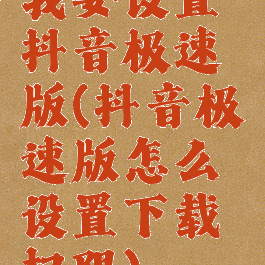 我要设置
抖音极速
版(抖音极
速版怎么
设置下载
权限)